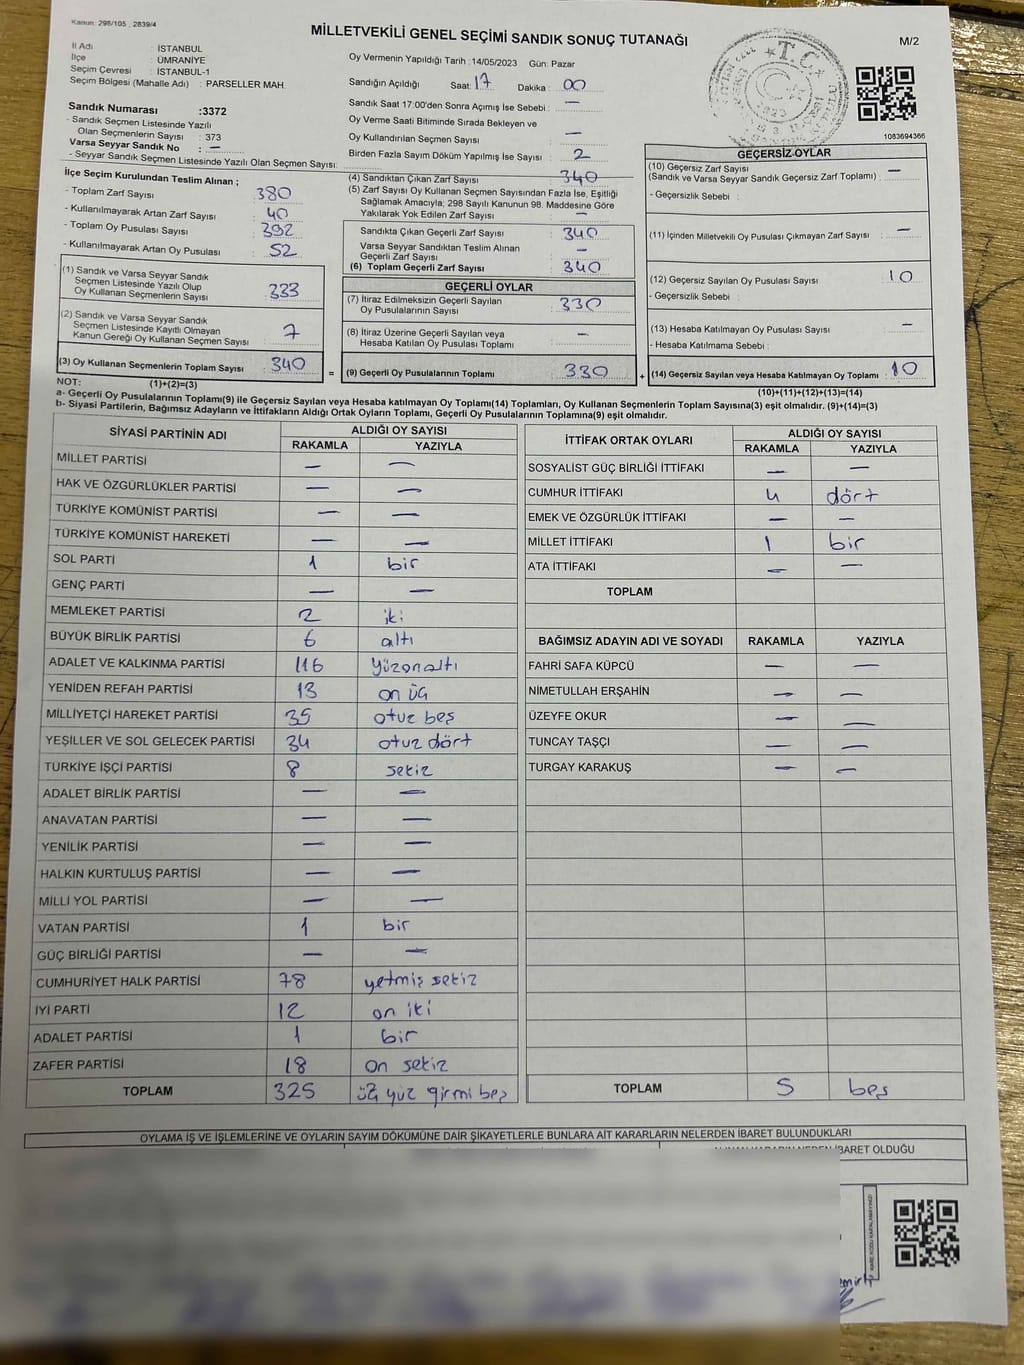 Kanun: 298/105 , 2839/4
MİLLETVEKİLİ GENEL SEÇİMİ SANDIK SONUÇ TUTANAĞI
M/2
İl Adı : İSTANBUL
İlçe : ÜMRANİYE
Seçim Çevresi : İSTANBUL-1
Seçim Bölgesi (Mahalle Adı) : PARSELLER MAH.
Sandık Numarası :3372
- Sandık Seçmen Listesinde Yazılı
Olan Seçmenlerin Sayısı : 373
Varsa Seyyar Sandık No : —
- Seyyar Sandık Seçmen Listesinde Yazılı Olan Seçmen Sayısı:
Oy Vermenin Yapıldığı Tarih :14/05/2023 Gün: Pazar
Sandığın Açıldığı Saat: 17 Dakika : 00
Sandık Saat 17:00'den Sonra Açımış İse Sebebi : —
Oy Verme Saati Bitiminde Sırada Bekleyen ve
Oy Kullandırılan Seçmen Sayısı —
Birden Fazla Sayım Döküm Yapılmış İse Sayısı : 2
T.C.
2023
1083694366
İlçe Seçim Kurulundan Teslim Alınan ;
- Toplam Zarf Sayısı : 380
- Kullanılmayarak Artan Zarf Sayısı : 40
- Toplam Oy Pusulası Sayısı : 392
- Kullanılmayarak Artan Oy Pusulası : 52
(1) Sandık ve Varsa Seyyar Sandık
Seçmen Listesinde Yazılı Olup
Oy Kullanan Seçmenlerin Sayısı 333
(2) Sandık ve Varsa Seyyar Sandık
Seçmen Listesinde Kayıtlı Olmayan
Kanun Gereği Oy Kullanan Seçmen Sayısı 7
(3) Oy Kullanan Seçmenlerin Toplam Sayısı 340
(4) Sandıktan Çıkan Zarf Sayısı : 340
(5) Zarf Sayısı Oy Kullanan Seçmen Sayısından Fazla İse, Eşitliği
Sağlamak Amacıyla; 298 Sayılı Kanunun 98. Maddesine Göre
Yakılarak Yok Edilen Zarf Sayısı : —
Sandıkta Çıkan Geçerli Zarf Sayısı : 340
Varsa Seyyar Sandıktan Teslim Alınan
Geçerli Zarf Sayısı : —
(6) Toplam Geçerli Zarf Sayısı : 340
GEÇERLİ OYLAR
(7) İtiraz Edilmeksizin Geçerli Sayılan
Oy Pusulalarının Sayısı : 330
(8) İtiraz Üzerine Geçerli Sayılan veya
Hesaba Katılan Oy Pusulası Toplamı : —
= (9) Geçerli Oy Pusulalarının Toplamı : 330
GEÇERSİZ OYLAR
(10) Geçersiz Zarf Sayısı
(Sandık ve Varsa Seyyar Sandık Geçersiz Zarf Toplamı) : —
- Geçersizlik Sebebi :
(11) İçinden Milletvekili Oy Pusulası Çıkmayan Zarf Sayısı : —
(12) Geçersiz Sayılan Oy Pusulası Sayısı : 10
- Geçersizlik Sebebi :
(13) Hesaba Katılmayan Oy Pusulası Sayısı : —
- Hesaba Katılmama Sebebi :
+ (14) Geçersiz Sayılan veya Hesaba Katılmayan Oy Toplamı : 10
NOT: (1)+(2)=(3) (10)+(11)+(12)+(13)=(14)
a- Geçerli Oy Pusulalarının Toplamı(9) ile Geçersiz Sayılan veya Hesaba katılmayan Oy Toplamı(14) Toplamları, Oy Kullanan Seçmenlerin Toplam Sayısına(3) eşit olmalıdır. (9)+(14)=(3)
b- Siyasi Partilerin, Bağımsız Adayların ve İttifakların Aldığı Ortak Oyların Toplamı, Geçerli Oy Pusulalarının Toplamına(9) eşit olmalıdır.
SİYASİ PARTİNİN ADI ALDIĞI OY SAYISI
RAKAMLA YAZIYLA
MİLLET PARTİSİ — —
HAK VE ÖZGÜRLÜKLER PARTİSİ — —
TÜRKİYE KOMÜNİST PARTİSİ — —
TÜRKİYE KOMÜNİST HAREKETİ — —
SOL PARTİ 1 bir
GENÇ PARTİ — —
MEMLEKET PARTİSİ 2 iki
BÜYÜK BİRLİK PARTİSİ 6 altı
ADALET VE KALKINMA PARTİSİ 116 yüzonaltı
YENİDEN REFAH PARTİSİ 13 on üç
MİLLİYETÇİ HAREKET PARTİSİ 35 otuz beş
YEŞİLLER VE SOL GELECEK PARTİSİ 34 otuz dört
TÜRKİYE İŞÇİ PARTİSİ 8 sekiz
ADALET BİRLİK PARTİSİ — —
ANAVATAN PARTİSİ — —
YENİLİK PARTİSİ — —
HALKIN KURTULUŞ PARTİSİ — —
MİLLİ YOL PARTİSİ — —
VATAN PARTİSİ 1 bir
GÜÇ BİRLİĞİ PARTİSİ — —
CUMHURİYET HALK PARTİSİ 78 yetmiş sekiz
İYİ PARTİ 12 on iki
ADALET PARTİSİ 1 bir
ZAFER PARTİSİ 18 on sekiz
TOPLAM 325 üç yüz yirmi beş
İTTİFAK ORTAK OYLARI ALDIĞI OY SAYISI
RAKAMLA YAZIYLA
SOSYALİST GÜÇ BİRLİĞİ İTTİFAKI — —
CUMHUR İTTİFAKI 4 dört
EMEK VE ÖZGÜRLÜK İTTİFAKI — —
MİLLET İTTİFAKI 1 bir
ATA İTTİFAKI — —
TOPLAM
BAĞIMSIZ ADAYIN ADI VE SOYADI RAKAMLA YAZIYLA
FAHRİ SAFA KÜPCÜ — —
NİMETULLAH ERŞAHİN — —
ÜZEYFE OKUR — —
TUNCAY TAŞÇI — —
TURGAY KARAKUŞ — —
TOPLAM 5 beş
OYLAMA İŞ VE İŞLEMLERİNE VE OYLARIN SAYIM DÖKÜMÜNE DAİR ŞİKAYETLERLE BUNLARA AİT KARARLARIN NELERDEN İBARET BULUNDUKLARI
İBARET OLDUĞU